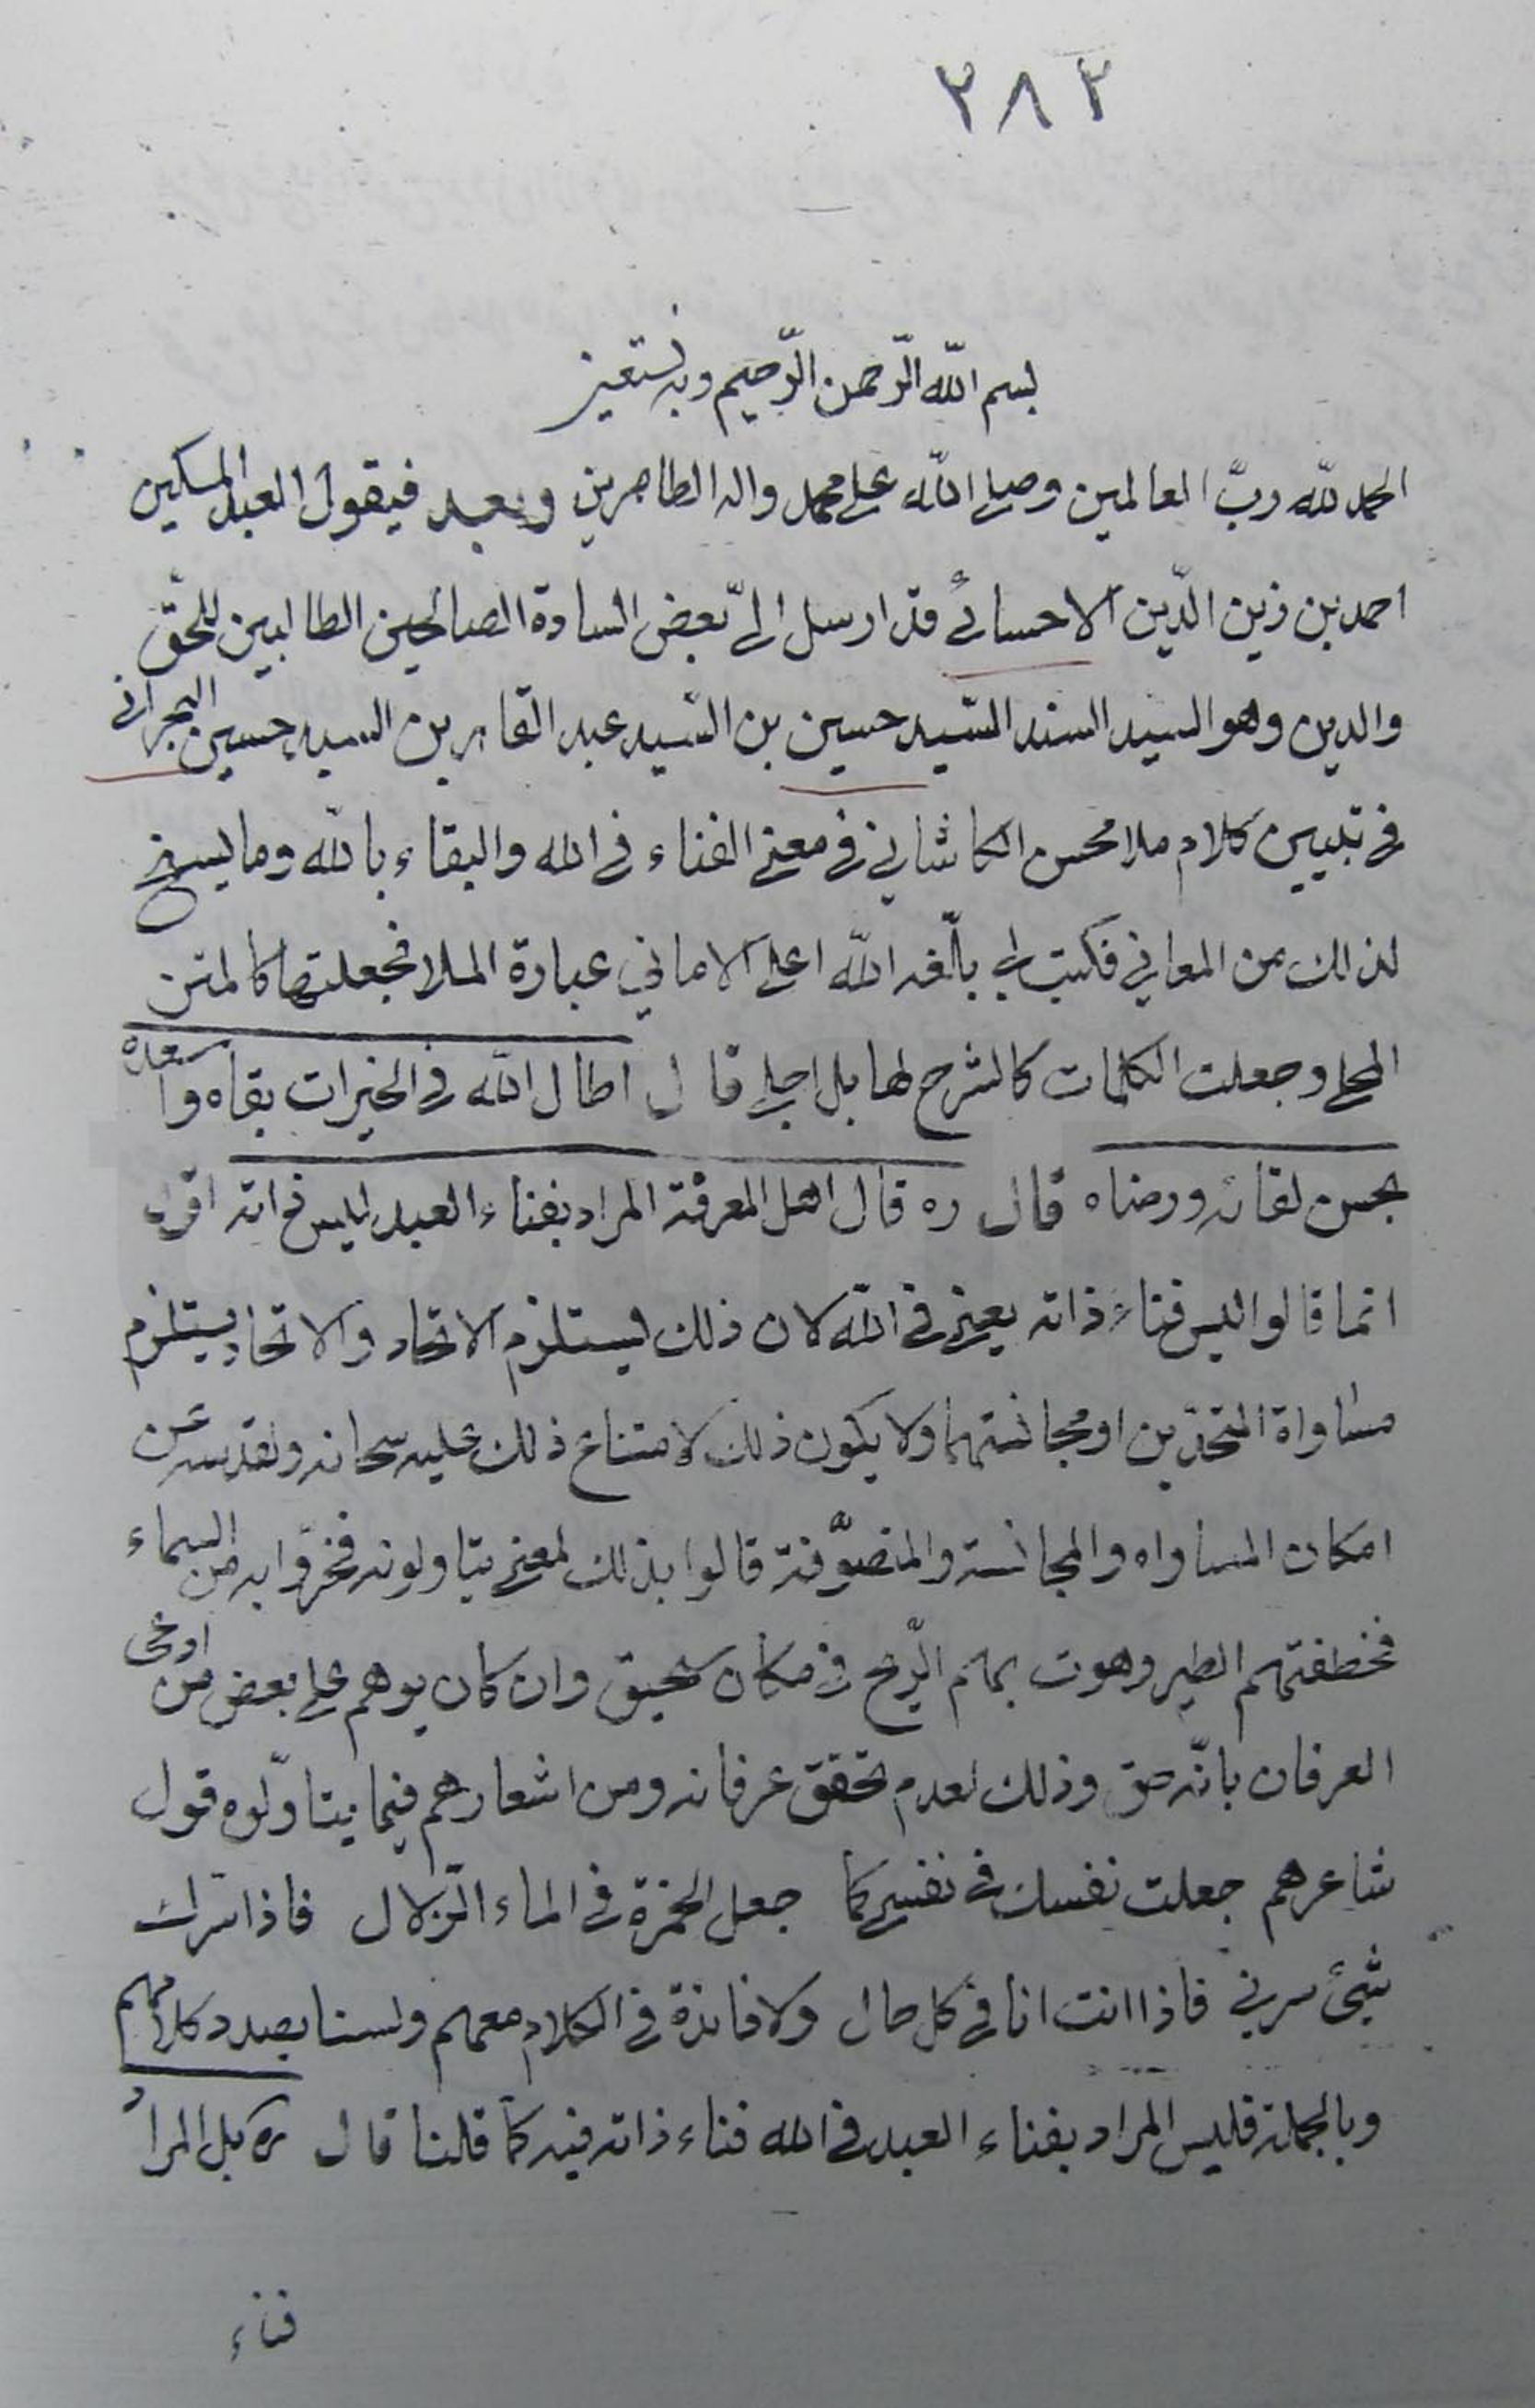 ٢٨٢
بسم الله الرّحمن الرّحيم وبه نستعين
الحمد للّه ربّ العالمين وصلى اللّه على محمد واله الطاهرين وبعد فيقول العبد المسكين
احمد بن زين الدّين الاحسائي قد ارسل الىّ بعض السادة الصالحين الطالبين للحقّ
والدين وهو السيد السند السّيد حسين بن السّيد عبد القاهر بن السيد حسين البحراني
في تبيين كلام ملا محسن الكاشاني في معنى الفناء في الله والبقاء بالله وما يسنح
لذلك من المعاني فكتبت له بلّغه اللّه اعلى الاماني عبارة الملا فجعلتها كالمتن
المحلى وجعلت الكلمات كالشرح لها بل اجلى قال اطال اللّه في الخيرات بقاه واسعده
بحسن لقائه ورضاه قال ره قال اهل المعرفة المراد بفناء العبد ليس ذاته اقول
انما قالوا ليس فناء ذاته يعني في اللّه لان ذلك يستلزم الاتحاد والاتحاد يستلزم
مساواة المتحدّين او مجانستهما ولا يكون ذلك لامتناع ذلك عليه سبحانه وتقدسه عن
امكان المساواه والمجانسة والمتصوّفة قالوا بذلك لمعنى يتاولونه فخرّوا به من السماء
فخطفتهم الطير وهوت بهم الرّيح في مكان سحيق وان كان يوهم على بعض من ادعى
العرفان بانّه حق وذلك لعدم تحقق عرفانه ومن اشعارهم فيما يتاوّلوه قول
شاعرهم جعلت نفسك في نفسي كما جعل الخمرة في الماء الزّلال فاذا سرك
شيئ سرني فاذا انت انا في كل حال ولا فائدة في الكلام معهم ولسنا بصدد كلامهم
وبالجملة فليس المراد بفناء العبد في الله فناء ذاته فيه كما قلنا قال ره بل المراد
فناء